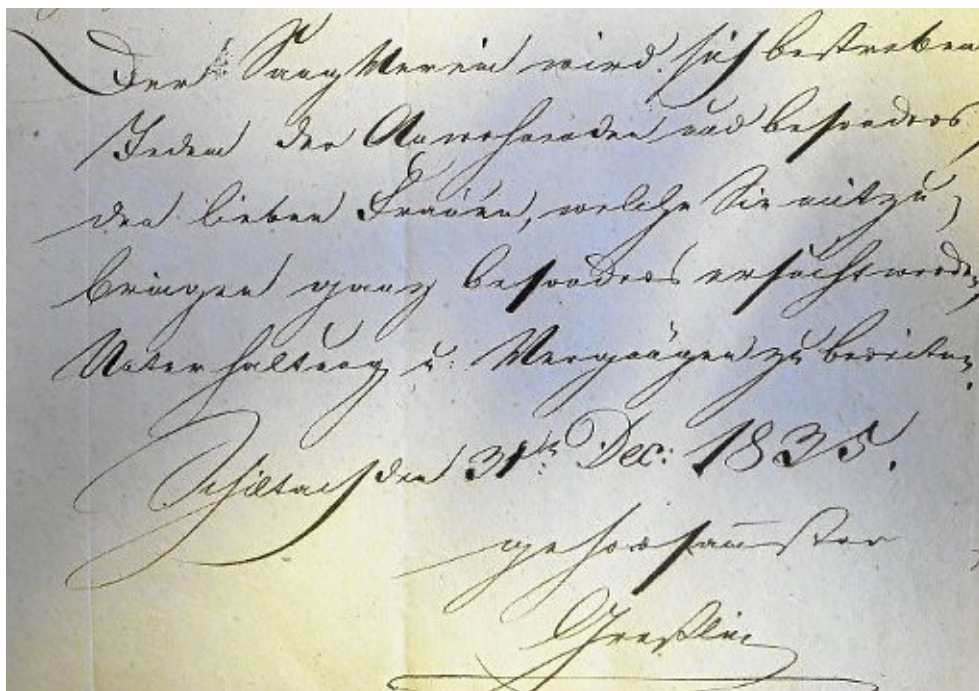 Der Sang Verein wird sich bestreben
Jedem der Anwesenden und besonders
den lieben Frauen, welche Sie mitzu
bringen ganz besonders ersucht werden,
Unterhaltung u: Vergnügen zu bereiten.
Schiltach den 31ten Dec: 1835.
gehorsamster